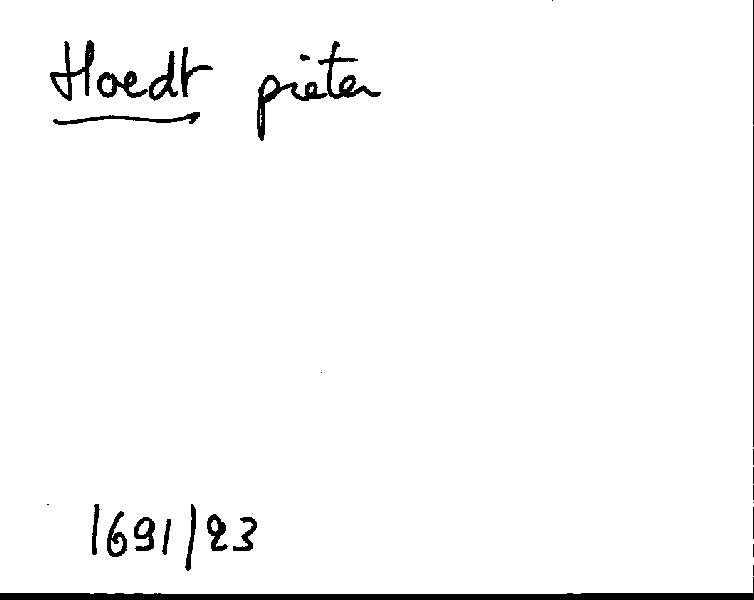 Hoedt pieter
1691/23